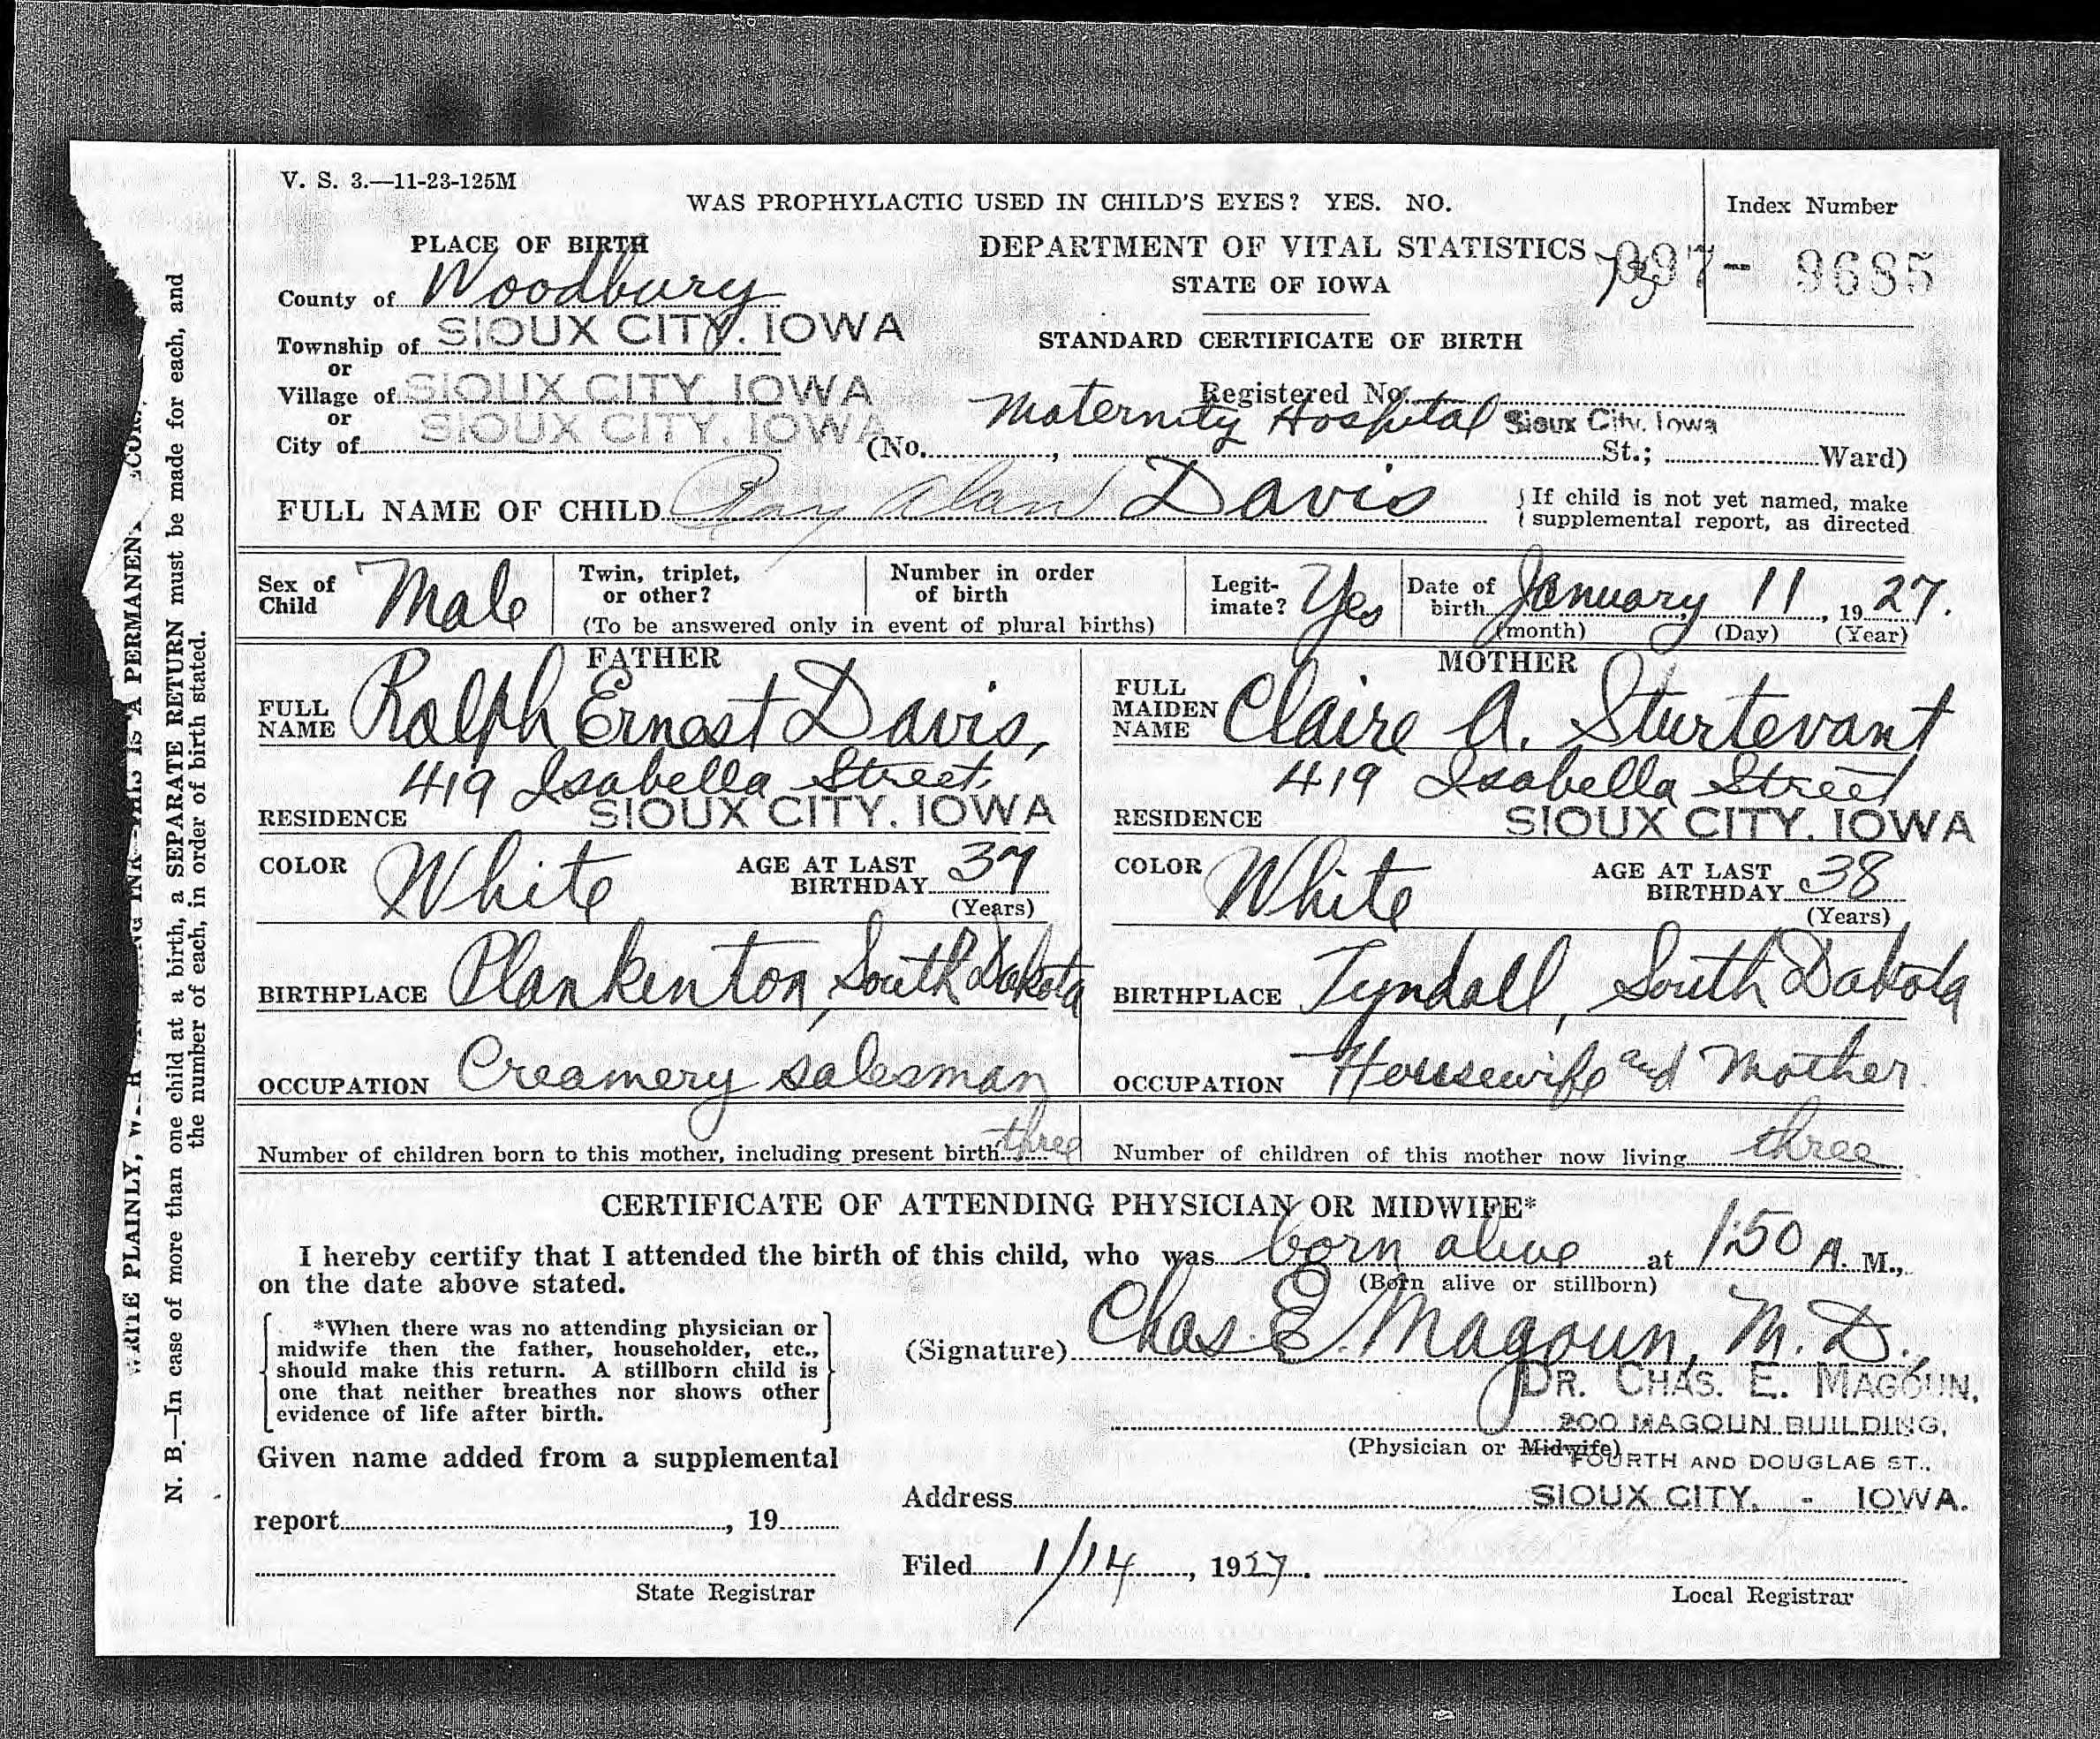 V. S. 3.—11-23-125M
WAS PROPHYLACTIC USED IN CHILD'S EYES? YES. NO.
Index Number
97- 9685
PLACE OF BIRTH
DEPARTMENT OF VITAL STATISTICS
STATE OF IOWA
County of Woodbury
Township of SIOUX CITY. IOWA
STANDARD CERTIFICATE OF BIRTH
or
Village of SIOUX CITY. IOWA
Registered No.
or
City of SIOUX CITY. IOWA (No. , Maternity Hospital Sioux City. Iowa St.; Ward)
FULL NAME OF CHILD Ray Alan Davis
If child is not yet named, make
supplemental report, as directed
Sex of Child Male
Twin, triplet, or other?
Number in order of birth
(To be answered only in event of plural births)
Legit-imate? Yes
Date of birth January 11, 1927.
(month) (Day) (Year)
FATHER
FULL NAME Ralph Ernest Davis,
419 Isabella Street,
RESIDENCE SIOUX CITY. IOWA
COLOR White AGE AT LAST BIRTHDAY 37
(Years)
BIRTHPLACE Plankenton, South Dakota
OCCUPATION Creamery salesman
MOTHER
FULL MAIDEN NAME Claire A. Sturtevant
419 Isabella Street
RESIDENCE SIOUX CITY. IOWA
COLOR White AGE AT LAST BIRTHDAY 38
(Years)
BIRTHPLACE Tyndall, South Dakota
OCCUPATION Housewife and Mother.
Number of children born to this mother, including present birth three
Number of children of this mother now living three
CERTIFICATE OF ATTENDING PHYSICIAN OR MIDWIFE*
I hereby certify that I attended the birth of this child, who was born alive at 1:50 A. M.,
(Born alive or stillborn)
on the date above stated.
*When there was no attending physician or
midwife then the father, householder, etc.,
should make this return. A stillborn child is
one that neither breathes nor shows other
evidence of life after birth.
(Signature) Chas. E. Magoun, M. D.,
DR. CHAS. E. MAGOUN,
200 MAGOUN BUILDING,
(Physician or Midwife) FOURTH AND DOUGLAS ST.,
Address SIOUX CITY, - IOWA.
Given name added from a supplemental
report , 19
State Registrar
Filed 1/14, 1927.
Local Registrar
WRITE PLAINLY, IS A PERMANEN
N. B.—In case of more than one child at a birth, a SEPARATE RETURN must be made for each, and
the number of each, in order of birth stated.